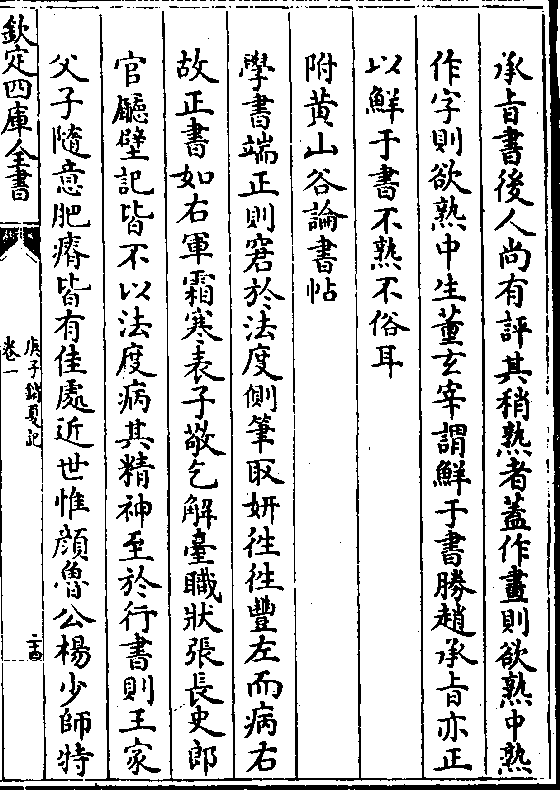 承旨書後人尚有評其稍熟者蓋作畫則欲熟中熟
作字則欲熟中生董玄宰謂鮮于書勝趙承旨亦正
以鮮于書不熟不俗耳
附黄山谷論書帖
學書端正則窘於法度側筆取妍往往豐左而病右
故正書如右軍霜寒表子敬乞解臺職狀張長史郎
官廳壁記皆不以法度病其精神至於行書則王家
父子隨意肥瘠皆有佳處近世惟顔魯公楊少師特
欽定四庫全書
庚子銷夏記
卷一
二十四